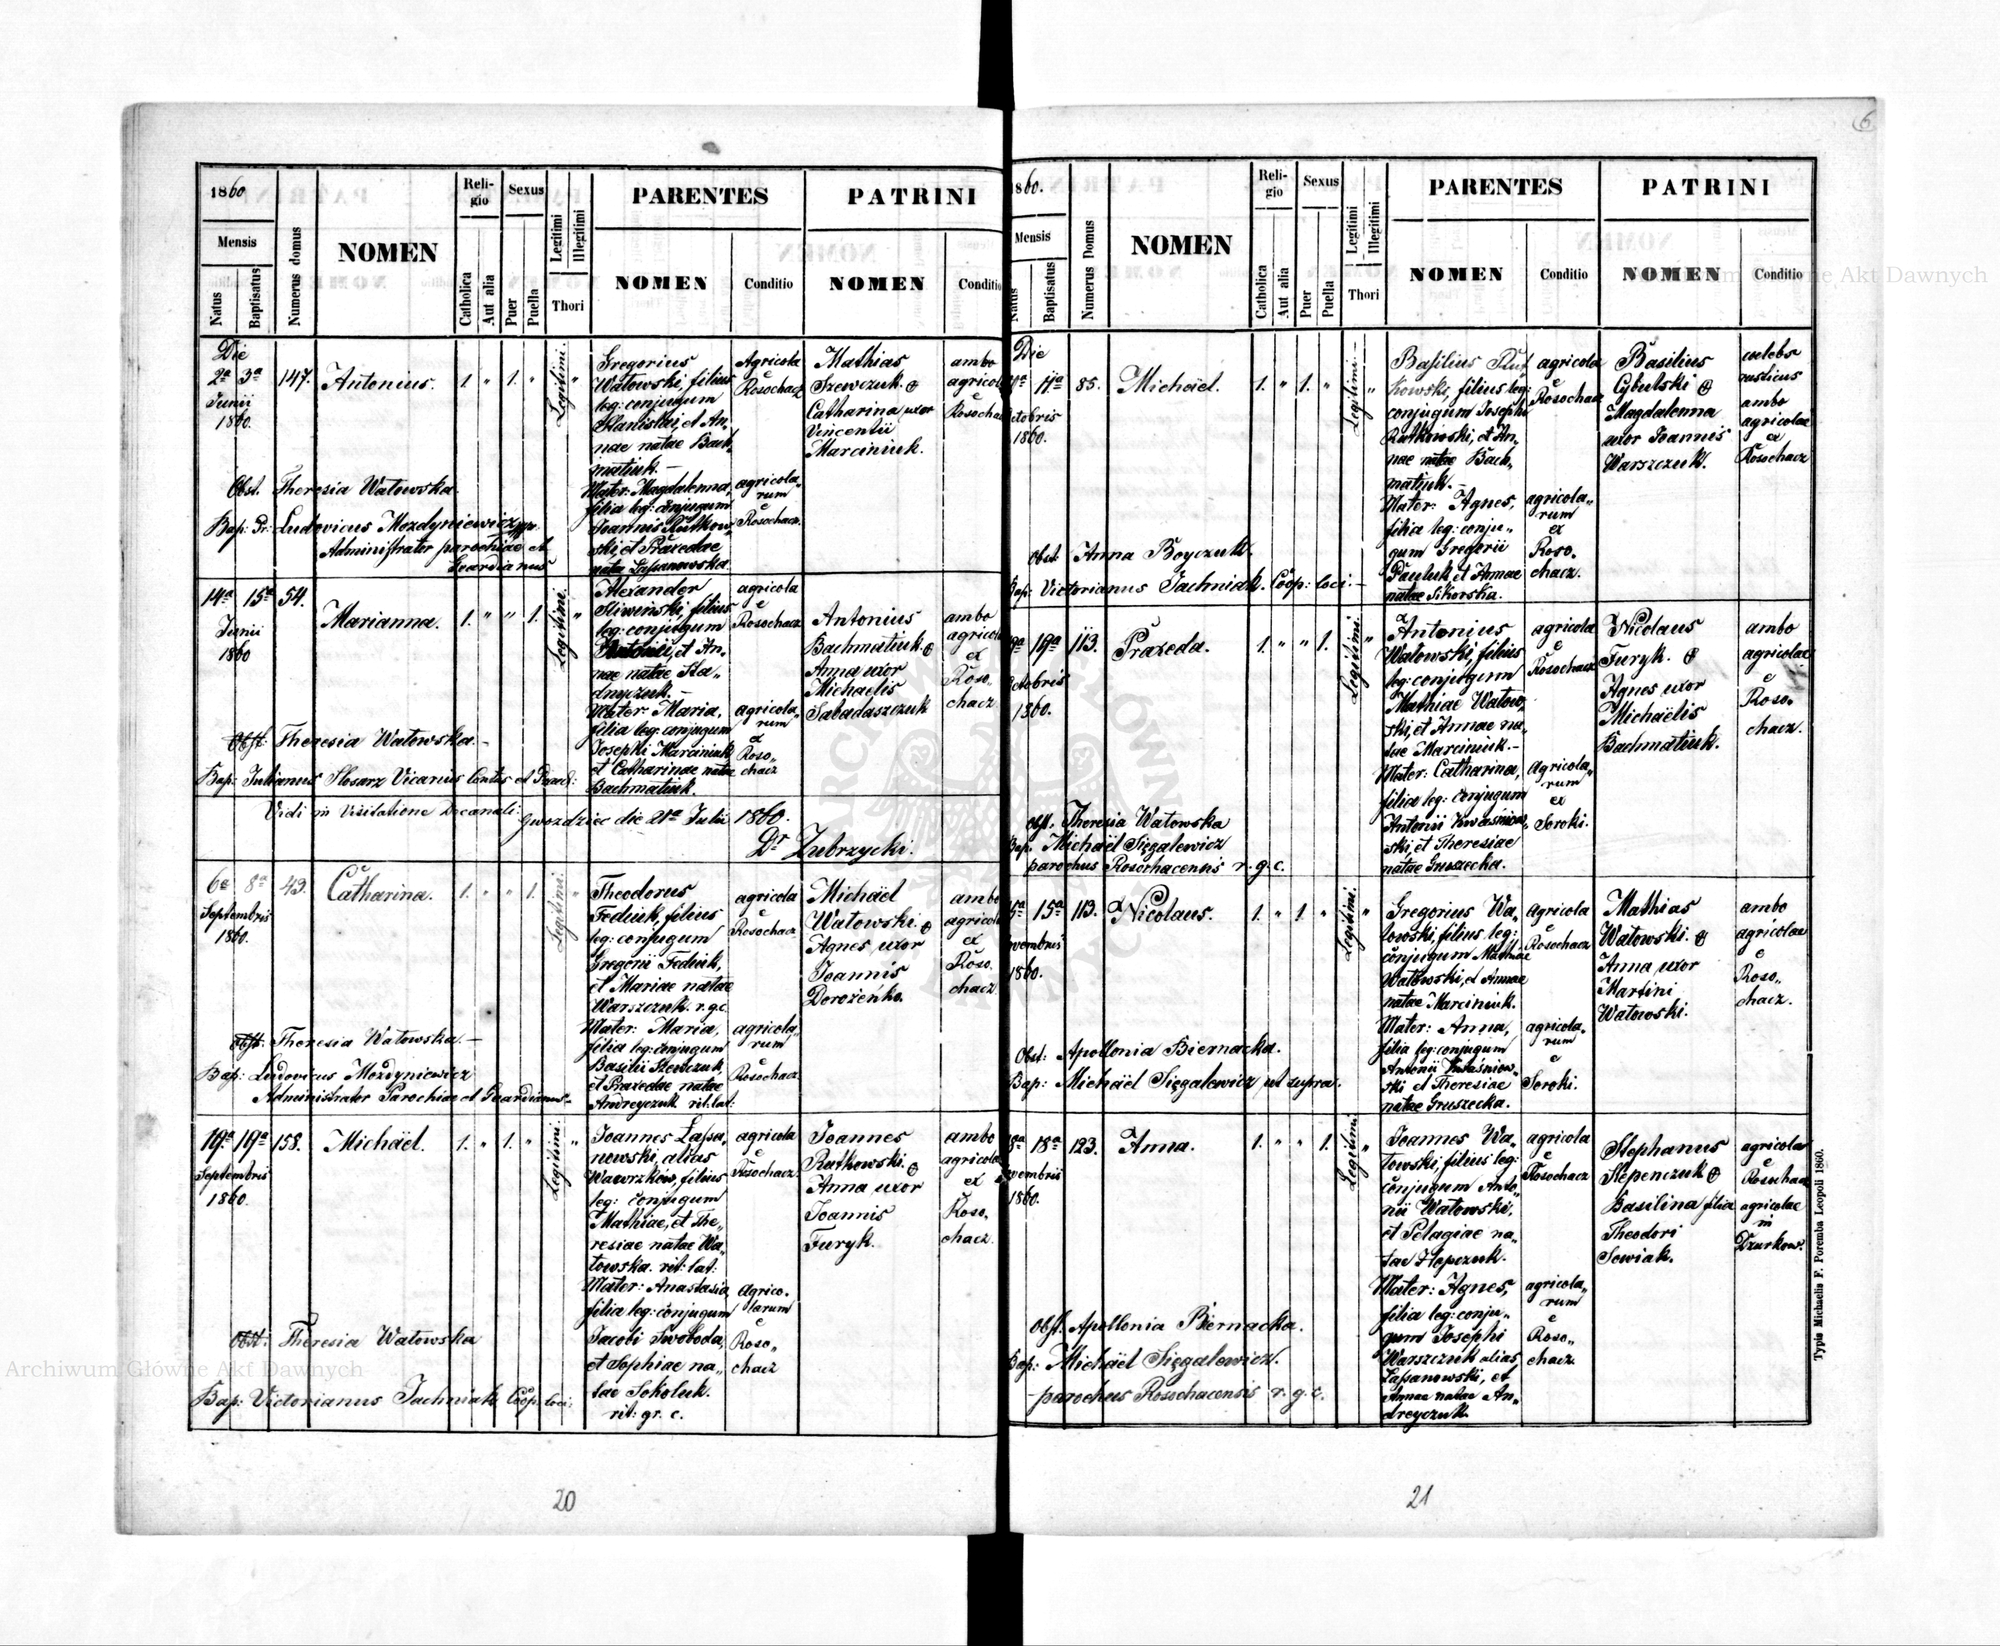 1860
Mensis
Natus
Baptisatus
Numerus domus
NOMEN
Religio
Catholica
Aut alia
Sexus
Puer
Puella
Legitimi
Illegitimi
Thori
PARENTES
NOMEN
Conditio
PATRINI
NOMEN
Conditio
Die
2ª 3ª
Junii
1860.
147.
Antonius.
1. " 1. " Legitimi. "
Gregorius
Watowski, filius
leg: conjugum
Stanislai, et An-
nae natae Bach-
matiuk. –
Mater: Magdalenna,
filia leg: conjugum
Joannis Rutkow-
ski, et Praxedae
nata Lassanowska.
Agricola
e
Rosochacz
agricola-
rum
e
Rosochacz.
Mathias
Szewczuk. &
Catharina uxor
Vincentii
Marciniuk.
ambo
agricolae
e
Rosochacz
Obst. Theresia Watowska.
Bap: Pr: Ludovicus Mozdyniewicz
Administrator parochiae et
Guardianus
14ª 15ª
Junii
1860
54.
Marianna.
1. " " 1. Legitimi. "
Alexander
Sliwiński, filius
leg: conjugum
et An-
nae natae Sta-
dnyczuk. –
Mater: Maria,
filia leg: conjugum
Josephi Marciniuk
et Catharinae natae
Bachmatiuk.
agricola
e
Rosochacz
agricola-
rum
ex
Roso-
chacz
Antonius
Bachmatiuk. &
Anna uxor
Michaelis
Sabadaszczuk
ambo
agricolae
ex
Roso-
chacz.
Obst. Theresia Watowska. –
Bap: Julianus Slosarz Vicarius
Vidi in Visitatione Decanali.
Gwozdziec die 21ª Julii 1860.
Dr Zubrzycki.
6ª 8ª
Septembris
1860.
43.
Catharina.
1. " " 1. Legitimi. "
Theodorus
Fediuk, filius
leg: conjugum
Gregorii Fediuk,
et Mariae natae
Warszczuk. r. g. c.
Mater: Maria,
filia leg: conjugum
Basilii Szewczuk,
et Praxedae natae
Andreyczuk rit: lat:
agricola
e
Rosochacz
agricola-
rum
e
Rosochacz.
Michaël
Watowski. &
Agnes uxor
Joannis
Dorożeńko.
ambo
agricolae
ex
Roso.
chacz.
Obst: Theresia Watowska. –
Bap: Ludovicus Mozdyniewicz
Administrator Parochiae et Guardianus
19ª 19ª
Septembris
1860.
158.
Michaël.
1. " 1. " Legitimi. "
Joannes Lassa-
nowski, alias
Wawrzków, filius
leg: conjugum
Mathiae, et The-
resiae natae Wa-
towska. rit: lat:
Mater: Anastasia,
filia leg: conjugum
Jacobi Swoboda,
et Sophiae na-
tae Sokoluk.
rit: gr. c.
agricola
e
Rosochacz.
Agrico-
larum
e
Roso-
chacz
Joannes
Rutkowski. &
Anna uxor
Joannis
Furyk.
ambo
agricolae
ex
Roso-
chacz.
Obst: Theresia Watowska
Bap: Victorianus Jachniak Coop. loci.
20
6
1860.
Mensis
Natus
Baptisatus
Numerus Domus
NOMEN
Religio
Catholica
Aut alia
Sexus
Puer
Puella
Legitimi
Illegitimi
Thori
PARENTES
NOMEN
Conditio
PATRINI
NOMEN
Conditio
Die
11ª
Octobris
1860.
85.
Michaël.
1. " 1. " Legitimi. – "
Basilius Rut-
kowski, filius leg:
conjugum Josephi
Rutkowski, et An-
nae natae Bach-
matiuk. –
Mater: Agnes,
filia leg: conju-
gum Gregorii
Pauluk, et Annae
natae Sikorska.
agricola
e
Rosochacz
agricola-
rum
ex
Roso-
chacz.
Basilius
Cybulski &
Magdalenna
uxor Joannis
Warszczuk.
caelebs
rusticus
ambo
agricolae
ex
Rosochacz
Obst: Anna Boyczuk.
Bap: Victorianus Jachniak. Coop: loci. –
19ª
Octobris
1860.
113.
Praxeda.
1. " " 1. Legitimi. "
Antonius
Watowski, filius
leg: conjugum
Mathiae Watow-
ski, et Annae na-
tae Marciniuk. –
Mater: Catharina,
filia leg: conjugum
Antonii Kwaśniow-
ski, et Theresiae
natae Gruszecka.
agricola
e
Rosochacz
Agricola-
rum
ex
Soroki.
Nicolaus
Furyk. &
Agnes uxor
Michaëlis
Bachmatiuk.
ambo
agricolae
e
Roso-
chacz.
Obst. Theresia Watowska
Bap. Michaël Sięgalewicz
parochus Rosochacensis r. g. c.
15ª
Novembris
1860.
113.
Nicolaus.
1. " 1. " Legitimi. "
Gregorius Wa-
towski, filius leg:
conjugum Mathiae
Watowski, et Annae
natae Marciniuk.
Mater: Anna,
filia leg: conjugum
Antonii Kwaśniow-
ski et Theresiae
natae Gruszecka.
Agricola
e
Rosochacz
agricola-
rum
e
Soroki.
Mathias
Watowski. &
Anna uxor
Martini
Watowski.
ambo
agricolae
e
Roso-
chacz.
Obst: Apollonia Biernacka.
Bap: Michaël Sięgalewicz ut supra.
18ª 18ª
Novembris
1860.
123.
Anna.
1. " " 1. Legitimi. "
Joannes Wa-
towski, filius leg:
conjugum Anto-
nii Watowski,
et Pelagiae na-
tae Hopczuk.
Mater: Agnes,
filia leg: conju-
gum Josephi
Warszczuk alias
Lassanowski, et
Annae natae An-
dreyczuk.
agricola
e
Rosochacz
agricola-
rum
e
Roso-
chacz.
Stephanus
Stepenczuk &
Basilina filia
Theodori
Sowiak.
agricola
e
Rosochacz
agricolae
in
Dzurkow.
Obst. Apollonia Biernacka.
Bap: Michaël Sięgalewicz.
parochus Rosochacensis r. g. c.
Typis Michaelis F. Poremba Leopoli 1860.
21
Archiwum Główne Akt Dawnych